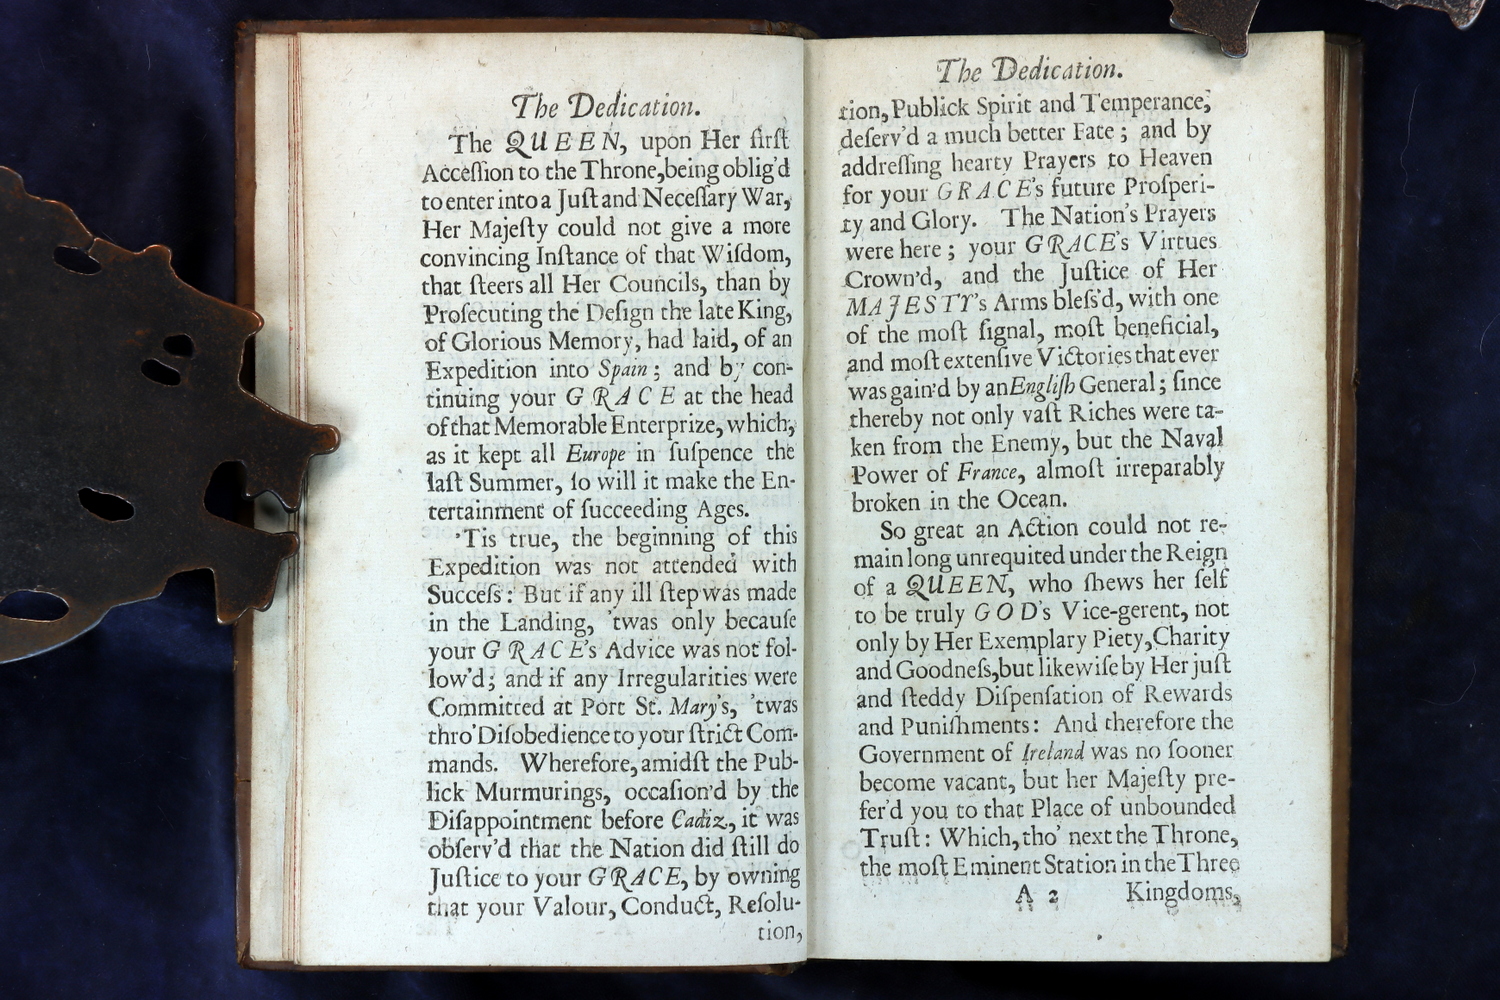 The Dedication.
The QUEEN, upon Her firſt
Acceſſion to the Throne, being oblig'd
to enter into a Juſt and Neceſſary War,
Her Majeſty could not give a more
convincing Inſtance of that Wiſdom,
that ſteers all Her Councils, than by
Proſecuting the Deſign the late King,
of Glorious Memory, had laid, of an
Expedition into Spain; and by con-
tinuing your GRACE at the head
of that Memorable Enterprize, which,
as it kept all Europe in ſuſpence the
laſt Summer, ſo will it make the En-
tertainment of ſucceeding Ages.
'Tis true, the beginning of this
Expedition was not attended with
Succeſs: But if any ill ſtep was made
in the Landing, 'twas only becauſe
your GRACE's Advice was not fol-
low'd; and if any Irregularities were
Committed at Port St. Mary's, 'twas
thro' Diſobedience to your ſtrict Com-
mands. Wherefore, amidſt the Pub-
lick Murmurings, occaſion'd by the
Diſappointment before Cadiz, it was
obſerv'd that the Nation did ſtill do
Juſtice to your GRACE, by owning
that your Valour, Conduct, Reſolu-
tion,
The Dedication.
tion, Publick Spirit and Temperance,
deſerv'd a much better Fate; and by
addreſſing hearty Prayers to Heaven
for your GRACE's future Proſperi-
ty and Glory. The Nation's Prayers
were here; your GRACE's Virtues
Crown'd, and the Juſtice of Her
MAJESTY's Arms bleſs'd, with one
of the moſt ſignal, moſt beneficial,
and moſt extenſive Victories that ever
was gain'd by an Engliſh General; ſince
thereby not only vaſt Riches were ta-
ken from the Enemy, but the Naval
Power of France, almoſt irreparably
broken in the Ocean.
So great an Action could not re-
main long unrequited under the Reign
of a QUEEN, who ſhews her ſelf
to be truly GOD's Vice-gerent, not
only by Her Exemplary Piety, Charity
and Goodneſs, but likewiſe by Her juſt
and ſteddy Diſpenſation of Rewards
and Puniſhments: And therefore the
Government of Ireland was no ſooner
become vacant, but her Majeſty pre-
fer'd you to that Place of unbounded
Truſt: Which, tho' next the Throne,
the moſt Eminent Station in the Three
A 2 Kingdoms,